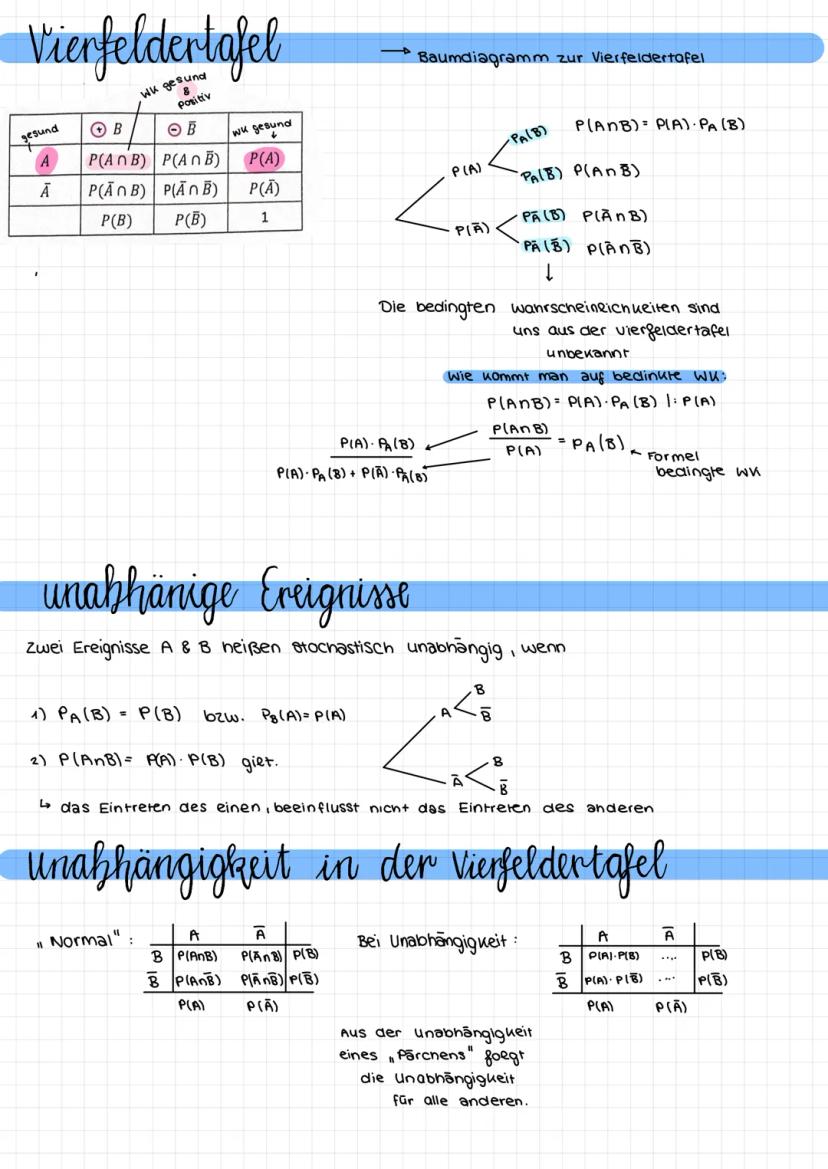 Vierfeldertafel
→ Baumdiagramm zur Vierfeldertafel
WK gesund
&
positiv
gesund ⊕ B ⊖ B̅ WK gesund
A P(A ∩ B) P(A ∩ B̅) P(A)
A̅ P(A̅ ∩ B) P(A̅ ∩ B̅) P(A̅)
P(B) P(B̅) 1
P_A(B) P(A∩B) = P(A)·P_A(B)
P(A)
P_A(B̅) P(A∩B̅)
P_A̅(B) P(A̅∩B)
P(A̅)
P_A̅(B̅) P(A̅∩B̅)
↓
Die bedingten Wahrscheinlichkeiten sind
uns aus der Vierfeldertafel
unbekannt
Wie kommt man auf bedinkte WK:
P(A∩B) = P(A)·P_A(B) |: P(A)
P(A∩B) / P(A) = P_A(B) ← Formel
bedingte WK
P(A)·P_A(B) / P(A)·P_A(B) + P(A̅)·P_A̅(B)
unabhänige Ereignisse
Zwei Ereignisse A & B heißen stochastisch unabhängig, wenn
1) P_A(B) = P(B) bzw. P_B(A) = P(A)
2) P(A∩B) = P(A)·P(B) gilt.
B
A
B̅
B
A̅
B̅
↳ das Eintreten des einen, beeinflusst nicht das Eintreten des anderen
Unabhängigkeit in der Vierfeldertafel
„Normal" :
A A̅
B P(A∩B) P(A̅∩B) P(B)
B̅ P(A∩B̅) P(A̅∩B̅) P(B̅)
P(A) P(A̅)
Bei Unabhängigkeit :
A A̅
B P(A)·P(B) .... P(B)
B̅ P(A)·P(B̅) .... P(B̅)
P(A) P(A̅)
Aus der Unabhängigkeit
eines „Pärchens" folgt
die Unabhängigkeit
für alle anderen.